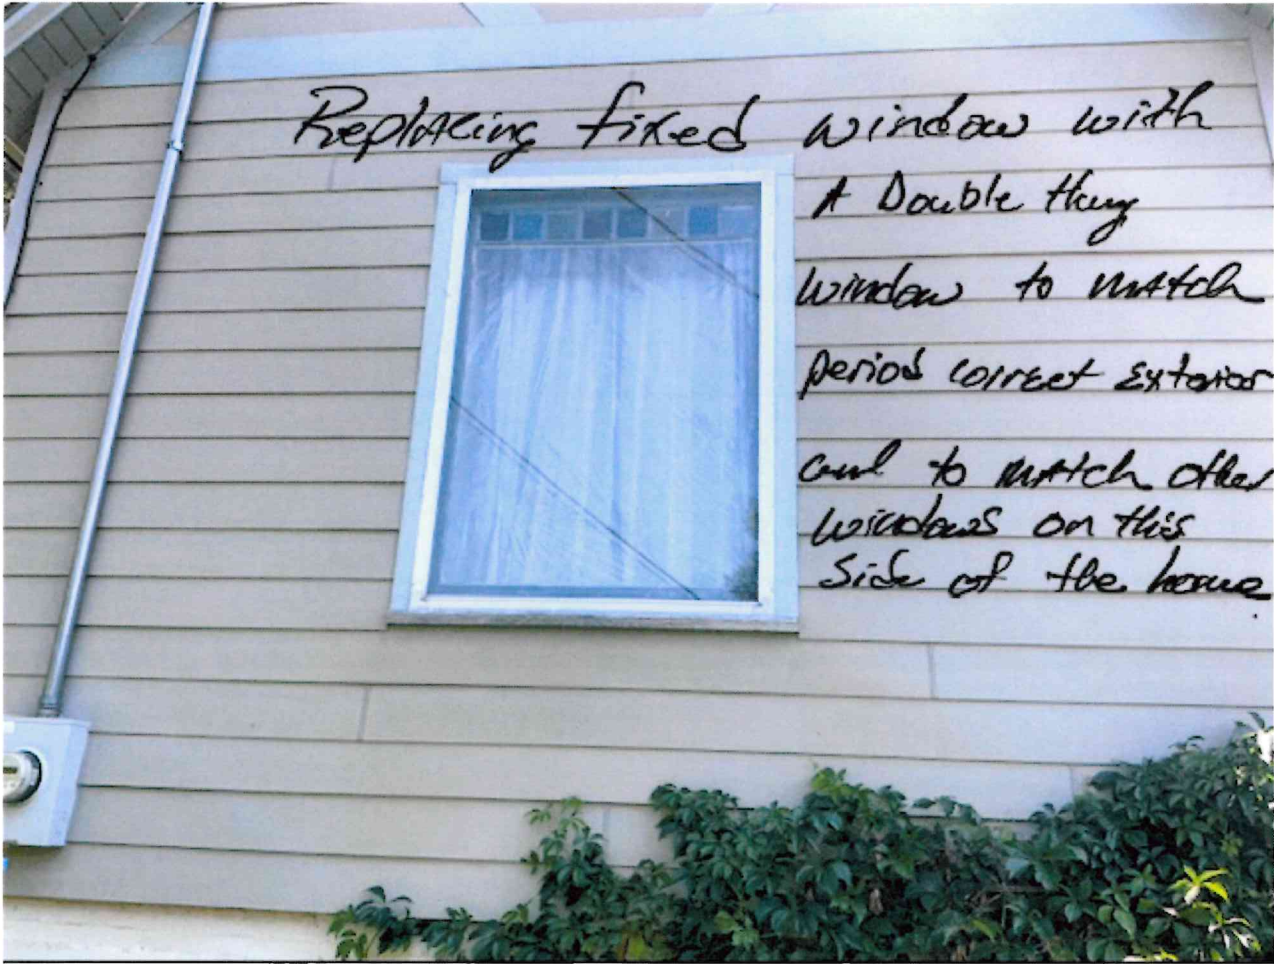 Replacing fixed window with
A Double Hung
window to match
period correct exterior
and to match other
windows on this
side of the home.